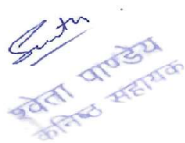 श्वेता पाण्डेय
कनिष्ठ सहायक